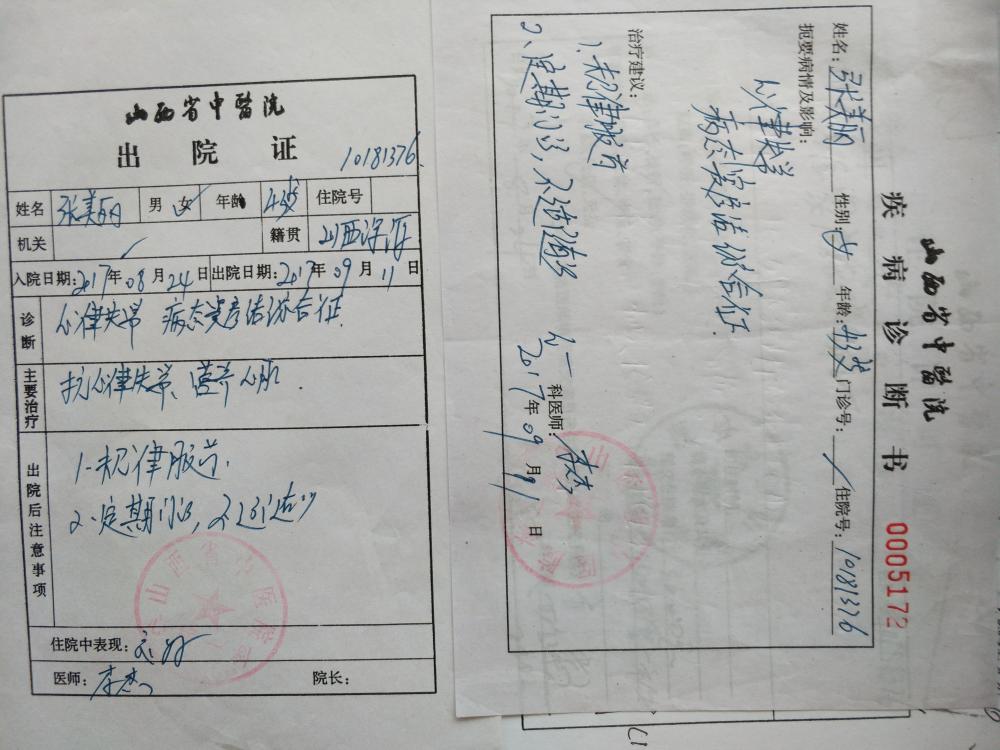 山西省中醫院
出院证
10181376
姓名 张美丽 男 女 年龄 43岁 住院号
机关 籍贯 山西
入院日期:2017年08月24日 出院日期:2017年09月11日
诊断 心律失常 病态窦房结综合征.
主要治疗 抗心律失常、营养心肌.
出院后注意事项
1.规律服药.
2、定期门诊,不适随诊
住院中表现:
医师:李杰
院长:
山西省中醫院
疾病诊断书 0005172
姓名:张美丽 性别:女 年龄:43岁 门诊号: 住院号:10181376
扼要病情及影响:
心律失常
病态窦房结综合征.
治疗建议:
1.规律服药
2、定期门诊,不适随诊
心一科医师:李杰
2017年09月11日